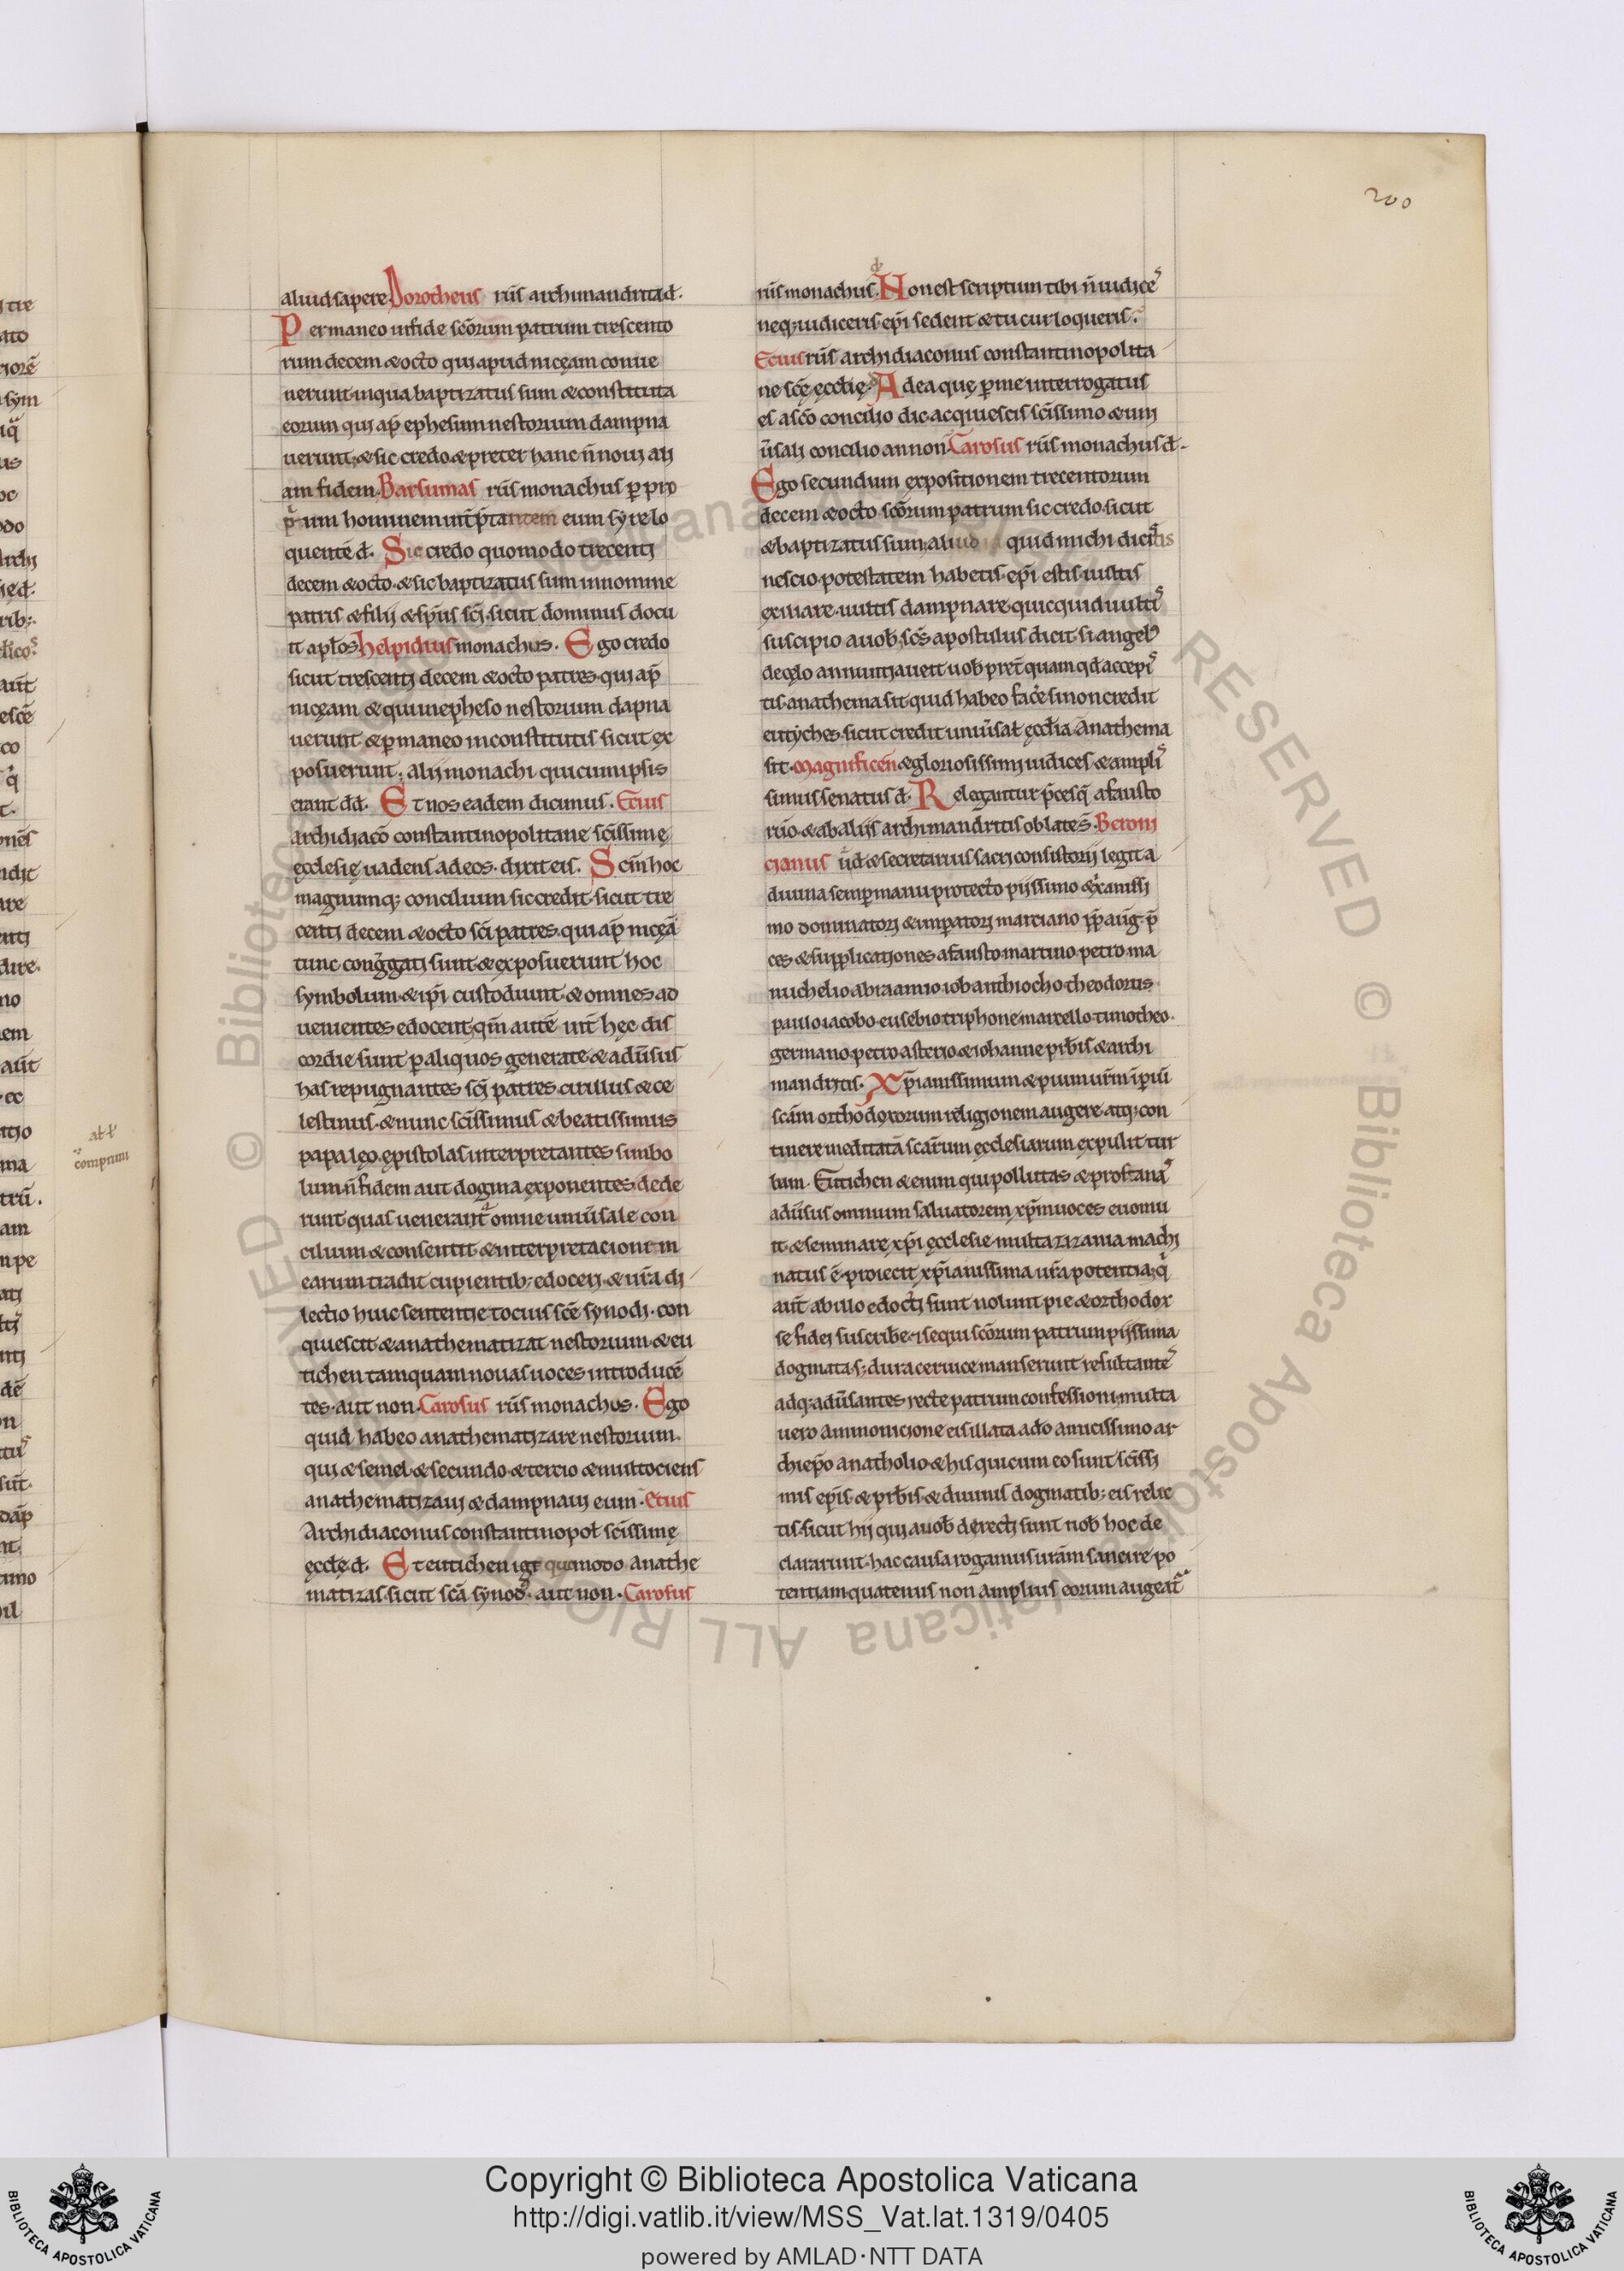 200
aliud sapere. Dorotheus rūs archimandrita d̄.
Permaneo in fide scōrum patrum trescento
rum decem & octo qui apud nicęam conue
nerunt. in qua baptizatus sum & constituta
eorum qui ap̄ ephesum nestorium dampna
uerunt, & sic credo & preter hanc n̄ noui ali
am fidem. Barsumas rūs monachus p pro
um hominem int̄p̄tantem eum syre lo
quentē d̄. Sic credo quomodo trecenti
decem & octo. & sic baptizatus sum in nomine
patris & filij & sp̄us sc̄i. sicut dominus docu
it apl̄os helpidius monachus. Ego credo
sicut trescenti decem & octo patres. qui ap̄
nicęam & qui in epheso nestorium dāpna
uerunt. & pmaneo in constitutis sicut ex
posuerunt; alij monachi qui cum ipsis
erant dd̄. Et nos eadem dicimus. Ecius
archidiacō constantinopolitane sc̄issimę
ęcclesię uadens ad eos. dixit eis. Scm̄ hoc
magnumq; concilium sic credit. sicut tre
centi decem & octo sc̄i patres. qui ap̄ nicęā
tunc cong̃gati sunt & exposuerunt hoc
symbolum. & ip̄i custodiunt. & omnes ad
uenientes edocent. qm̄ autē int̄ hęc dis
cordie sunt p aliquos generate & adūsus
has repugnantes sc̄i patres. cirillus & ce
lestinus. & nunc sc̄issimus & beatissimus
papa leo. epistolas interpretantes simbo
lum n̄ fidem aut dogma exponentes dede
runt quas uenerant̃ omne uniūsale con
cilium & consentit & interpretacionem
earum tradit cupientib; edoceri. & ur̄a di
lectio huic sententie tocius sc̄e synodi. con
quiescit & anathematizat nestorium & eu
tichen tamquam nouas uoces introducē
tes. aut non. Carosus rūs monachus. Ego
quid habeo anathematizare nestorium.
qui & semel & secundo & tercio & multociens
anathematizaui & dampnaui eum. Etius
Archidiaconus constantinopol̄ sc̄issimę
ęccl̄e d̄. Et eutichen igr̄ quomodo anathe
matizas. sicut sc̄a synodꝰ. aut non. Carosus
rūs monachus. Non est scriptum tibi n̄ iudices
neq; iudiceris. ep̄i sedent & tu cur loqueris.
Ecius rūs archidiaconus constantinopolita
ne sc̄ę ęccl̄ię. Ad ea quę p me interrogatus
es a sc̄o concilio dic. acquiescis sc̄issimo & uni
ūsali concilio annon. Carosus rūs monachus d̄.
Ego secundum expositionem trecentorum
decem & octo scōrum patrum sic credo. sicut
& baptizatus sum. aliud quid michi dicitis
nescio. potestatem habetis. ep̄i estis. uultis
exiliare. uultis dampnare. quicquid uultis
suscipio a uob̄. sc̄s apostulus dicit. si angelꝰ
de cęlo annuntiauerit uob̄ pret̄ quam qd accepis
tis. anathema sit. quid habeo facere si non credit
eutyches. sicut credit uniūsal̄ ęccl̄ia. Anathema
sit. Magnificen & gloriosissimi iudices & amplis
simus senatus d̄. Relegantur p̄ces q̄ a fausto
rūo. & ab alijs archimandritis oblatę s̄. Beroni
cianus ūd & secretarius sacri consistorij legit. a
diuina semp manu protecto pijssimo & xp̄ianissi
mo dominatori & imperatori marciano pp̄ aug̃. p̄
ces & supplicationes a fausto martino. petro. ma
nuchelio. abraamio. iob. anthiocho. theodorus.
paulo. iacobo. eusebio. triphone. marcello. timotheo.
germano. petro. asterio. & iohanne prb̄is & archi
mandritis. Xp̄ianissimum & pium ur̄m īperiū
sc̄am orthodoxorum religionem augere. atq; con
tinere meditatā scārum ęcclesiarum expulit tur
bam. Eutichen & eum qui pollutas & profanas
adūsus omnium saluatorem xp̄m uoces euomu
it. & seminare xp̄i ęcclesie multa zizania machi
natus ē. proiecit xp̄ianissima ur̄a potentia. q̄
aut̄ ab illo edocti sunt nolunt pie & orthodox
se fidei suscribe. & sequi scōrum patrum pijssima
dogmata. s; dura ceruice manserunt resultantes
adq; adūsantes recte patrum confessioni. multa
uero ammonicione eis illata a dō amicissimo ar
chiepō anatholio. & his qui cum eo sunt sc̄issi
mis ep̄is. & prb̄is. & diuinis dogmatib; eis relec
tis. sicut hij qui a uob̄ derecti sunt nob̄ hoc de
clararunt. hac causa rogamus ur̄am sancire po
tentiam. quatenus non amplius eorum augeat̃
al̄ l̄
comprim
Copyright © Biblioteca Apostolica Vaticana
http://digi.vatlib.it/view/MSS_Vat.lat.1319/0405
powered by AMLAD·NTT DATA
BIBLIOTECA APOSTOLICA VATICANA
BIBLIOTECA APOSTOLICA VATICANA